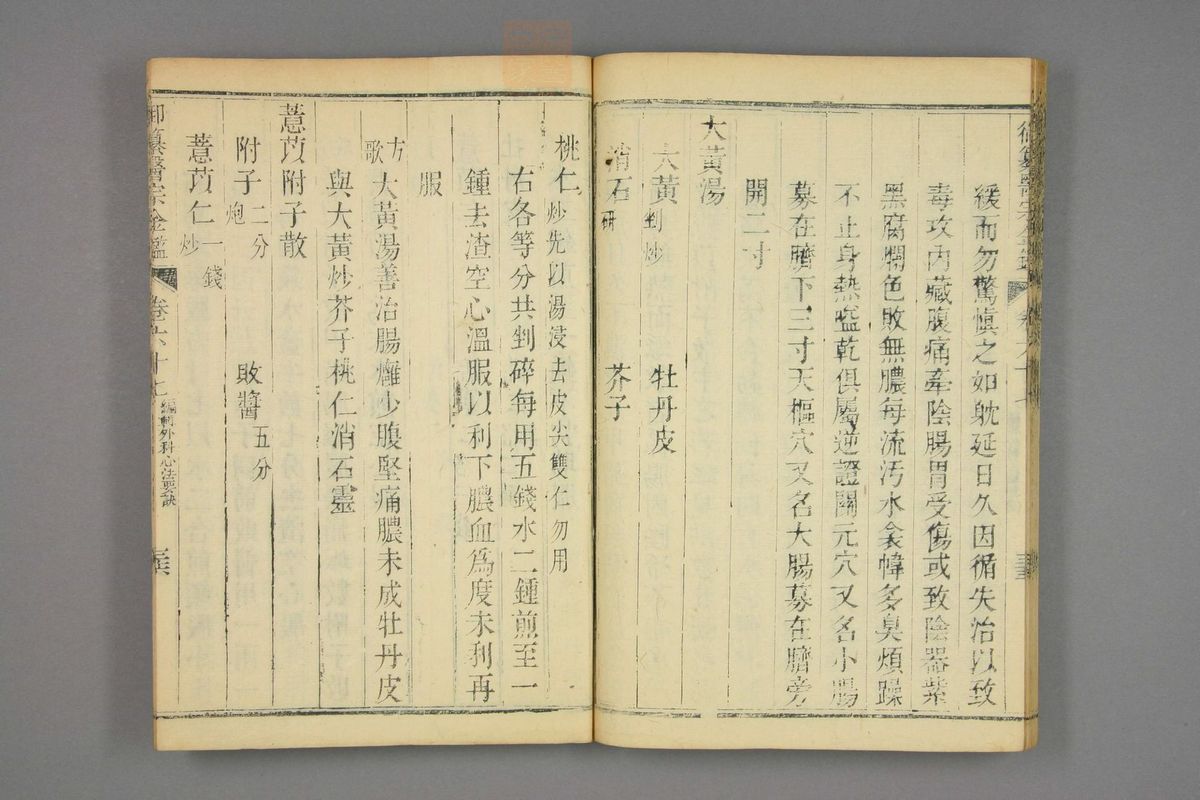 緩而勿驚慎之如躭延日久因循失治以致
毒攻內藏腹痛牽陰腸胃受傷或致陰器紫
黑腐爛色敗無膿每流汚水衾幃多臭煩躁
不止身熱嗌乾俱屬逆證關元穴又名小腸
募在臍下三寸天樞穴又名大腸募在臍旁
開二寸
大黃湯
大黃剉炒 牡丹皮
消石研 芥子
桃仁炒先以湯浸去皮尖雙仁勿用
右各等分共剉碎每用五錢水二鍾煎至一
鍾去渣空心溫服以利下膿血爲度未利再
服
方歌 大黃湯善治腸癰少腹堅痛膿未成牡丹皮
與大黃炒芥子桃仁消石靈
薏苡附子散
附子二分炮 敗醬五分
薏苡仁一錢炒
御纂醫宗金鑑 卷六十七 編輯外科心法要訣